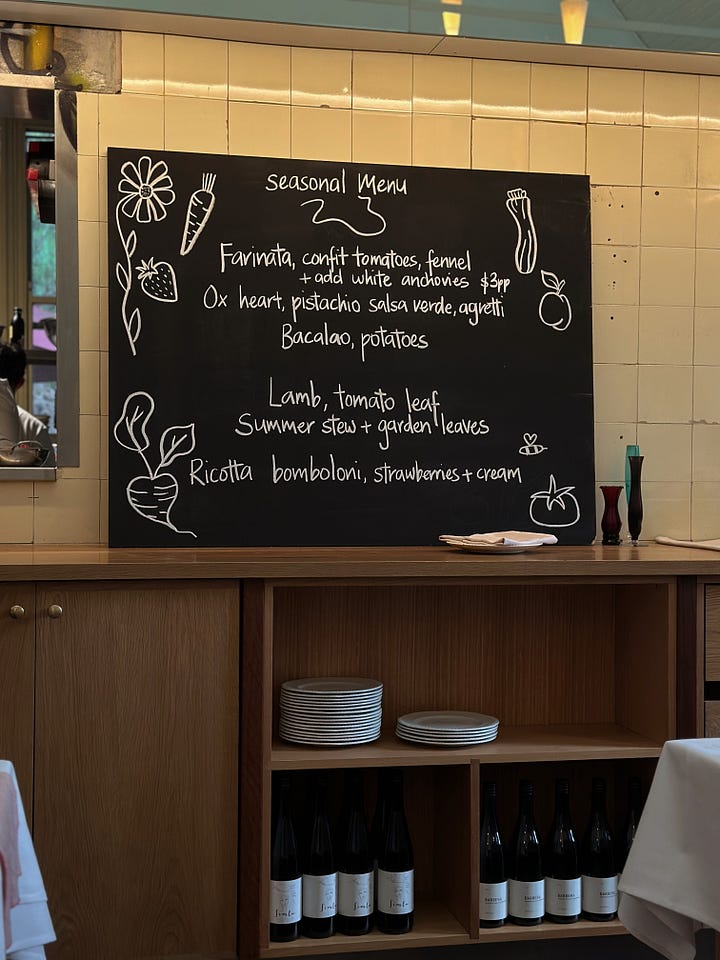 seasonal Menu
Farinata, confit tomatoes, fennel
+ add white anchovies $3pp
Ox heart, pistachio salsa verde, agretti
Bacalao, potatoes
Lamb, tomato leaf
Summer stew + garden leaves
Ricotta bomboloni, strawberries + cream